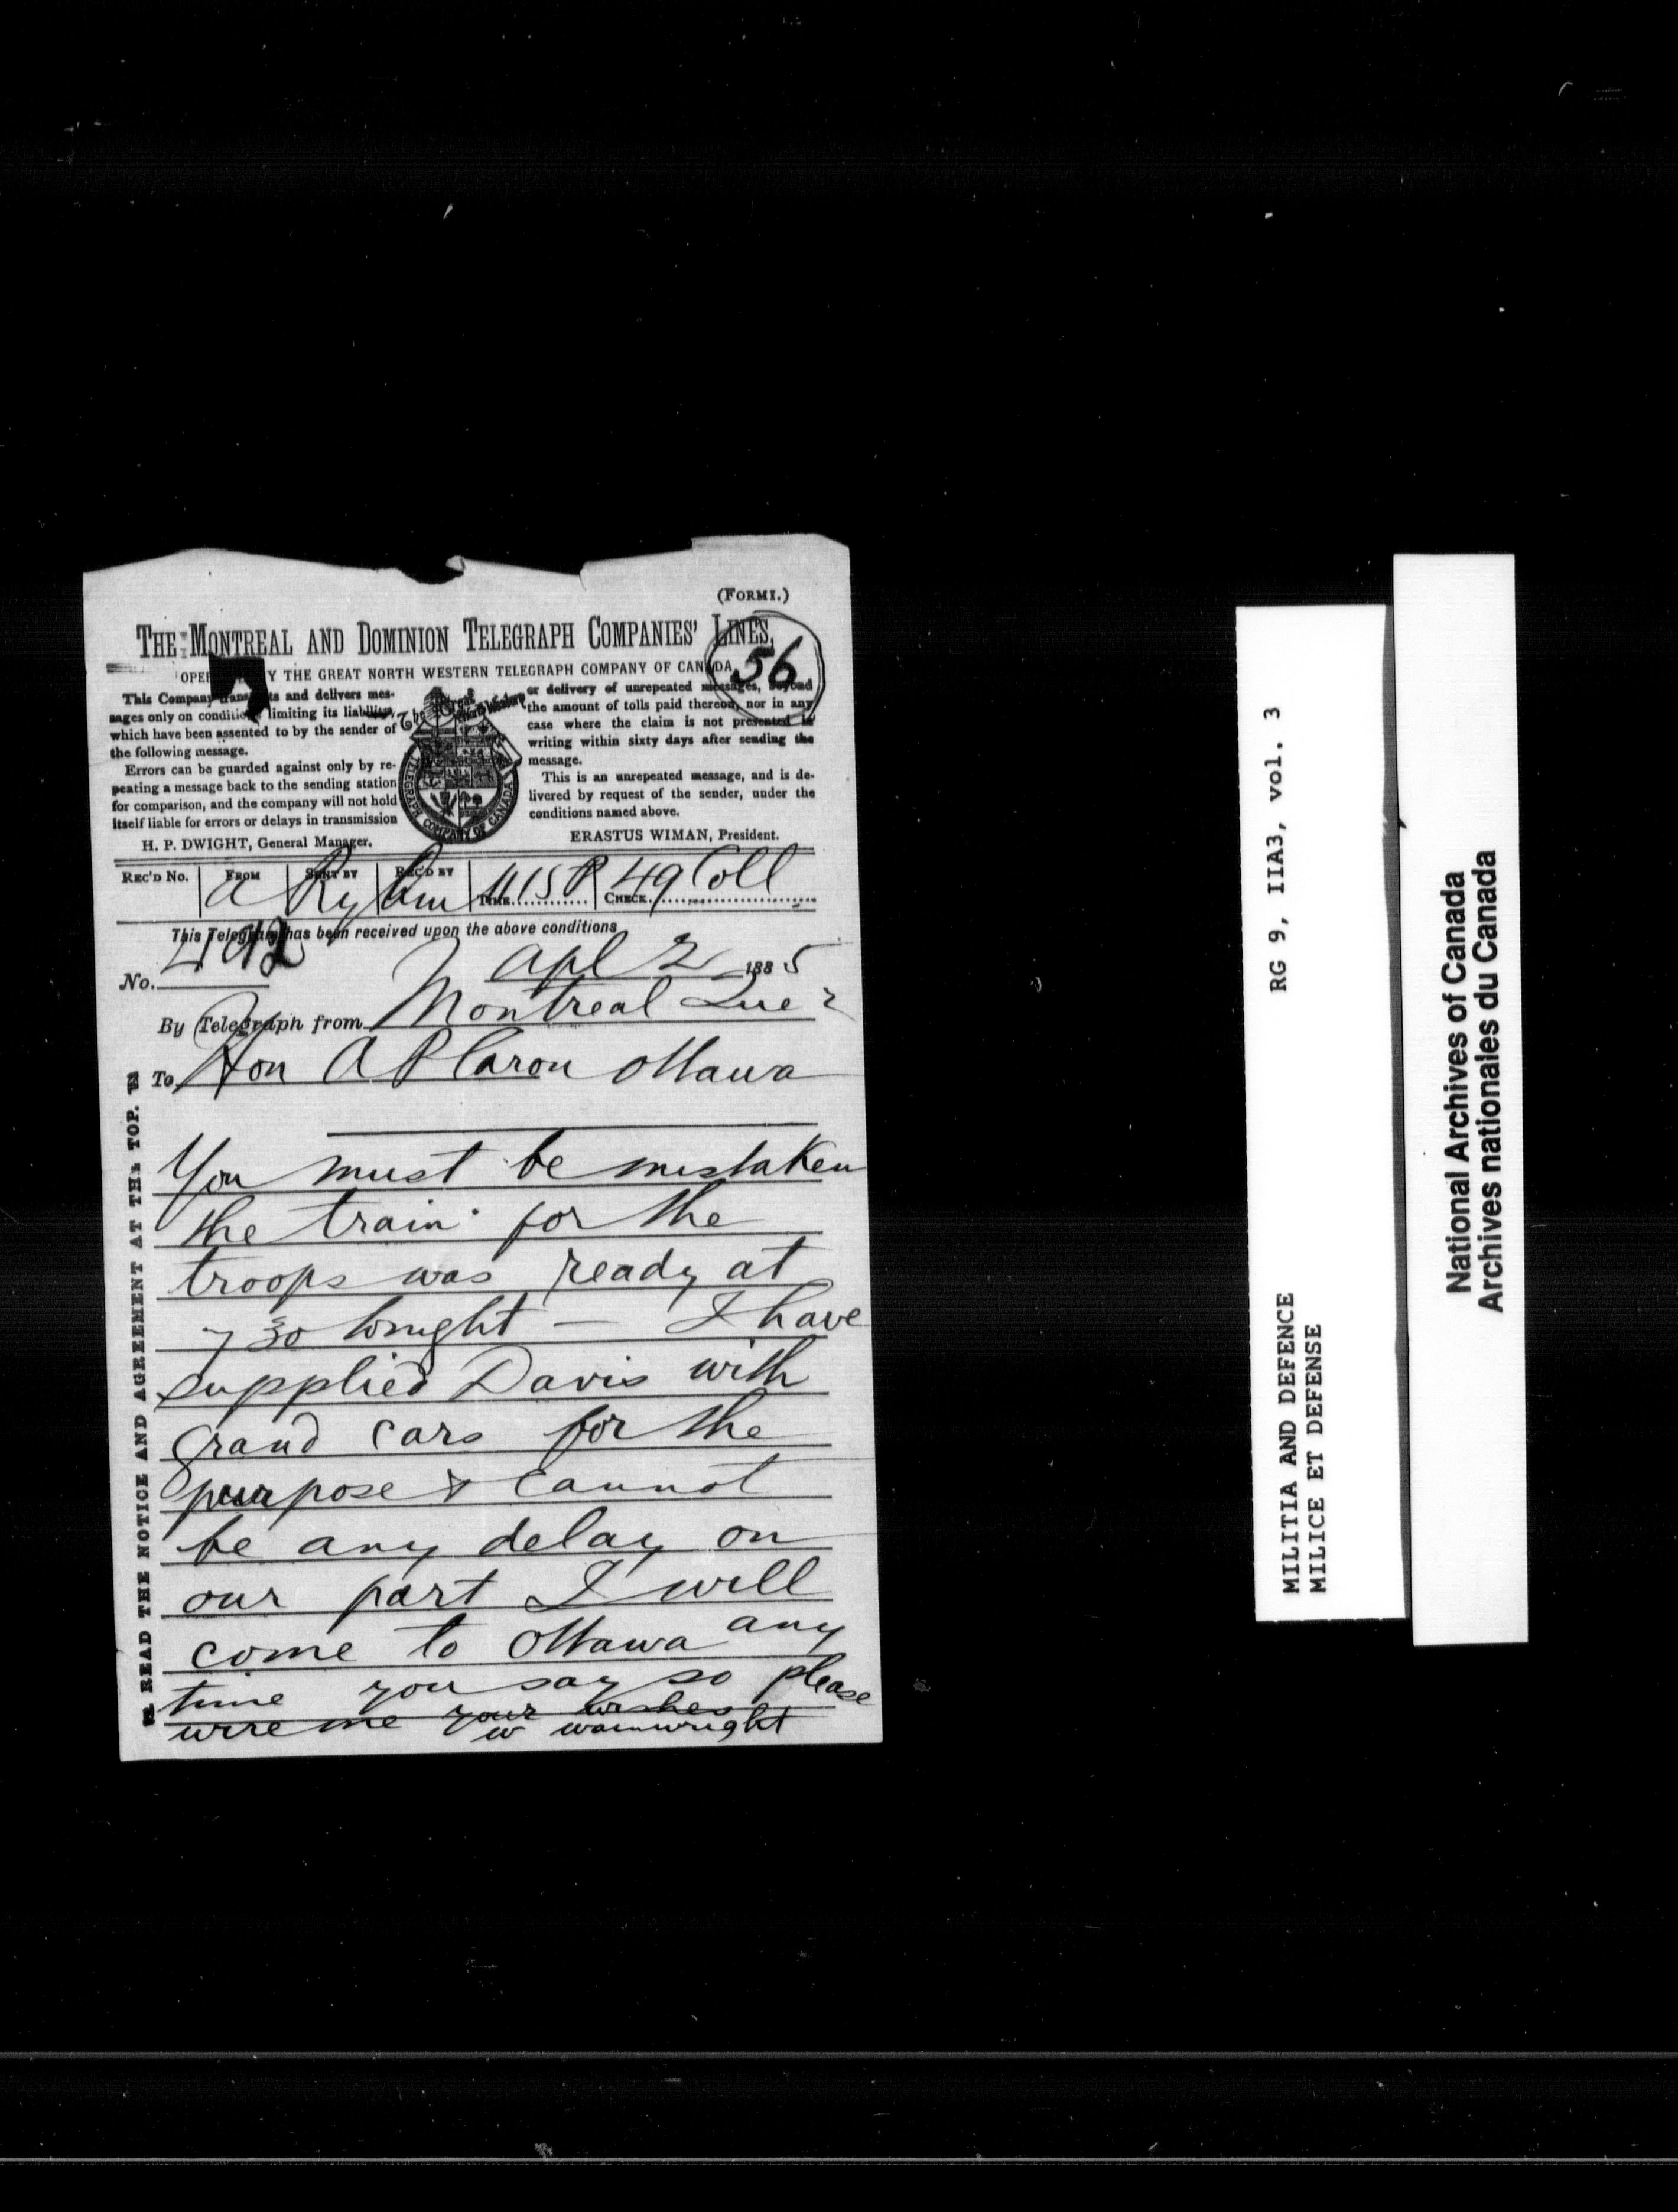 (FORM 1.)
THE MONTREAL AND DOMINION TELEGRAPH COMPANIES' LINES,
56
OPER Y THE GREAT NORTH WESTERN TELEGRAPH COMPANY OF CANADA
This Company trans ts and delivers mes-
sages only on conditions limiting its liability,
which have been assented to by the sender of
the following message.
Errors can be guarded against only by re-
peating a message back to the sending station
for comparison, and the company will not hold
itself liable for errors or delays in transmission
H. P. DWIGHT, General Manager.
The Great North Western
TELEGRAPH COMPANY OF CANADA
or delivery of unrepeated messages, beyond
the amount of tolls paid thereon, nor in any
case where the claim is not presented in
writing within sixty days after sending the
message.
This is an unrepeated message, and is de-
livered by request of the sender, under the
conditions named above.
ERASTUS WIMAN, President.
REC'D No. FROM SENT BY REC'D BY TIME CHECK
a Ry 1115P 49 Coll
This Telegram has been received upon the above conditions
No. 492
apl 2 1885
By Telegraph from Montreal Que 2
To Hon A P Caron Ottawa
You must be mistaken
the train for the
troops was ready at
7 30 tonight — I have
supplied Davis with
grand cars for the
purpose & cannot
be any delay on
our part I will
come to Ottawa any
time you say so please
wire me your wishes
w wainwright
READ THE NOTICE AND AGREEMENT AT THE TOP.
MILITIA AND DEFENCE RG 9, IIA3, vol. 3
MILICE ET DEFENSE
National Archives of Canada
Archives nationales du Canada